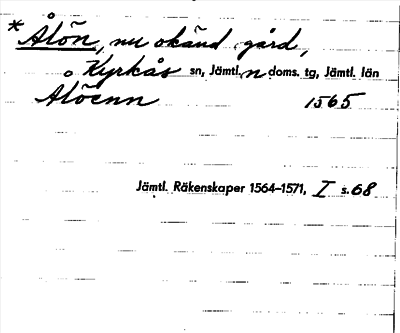 * Ålön, nu okänd gård,
Kyrkås sn, Jämtl. n doms. tg, Jämtl. län
Ålöenn 1565
Jämtl. Räkenskaper 1564–1571, I s. 68